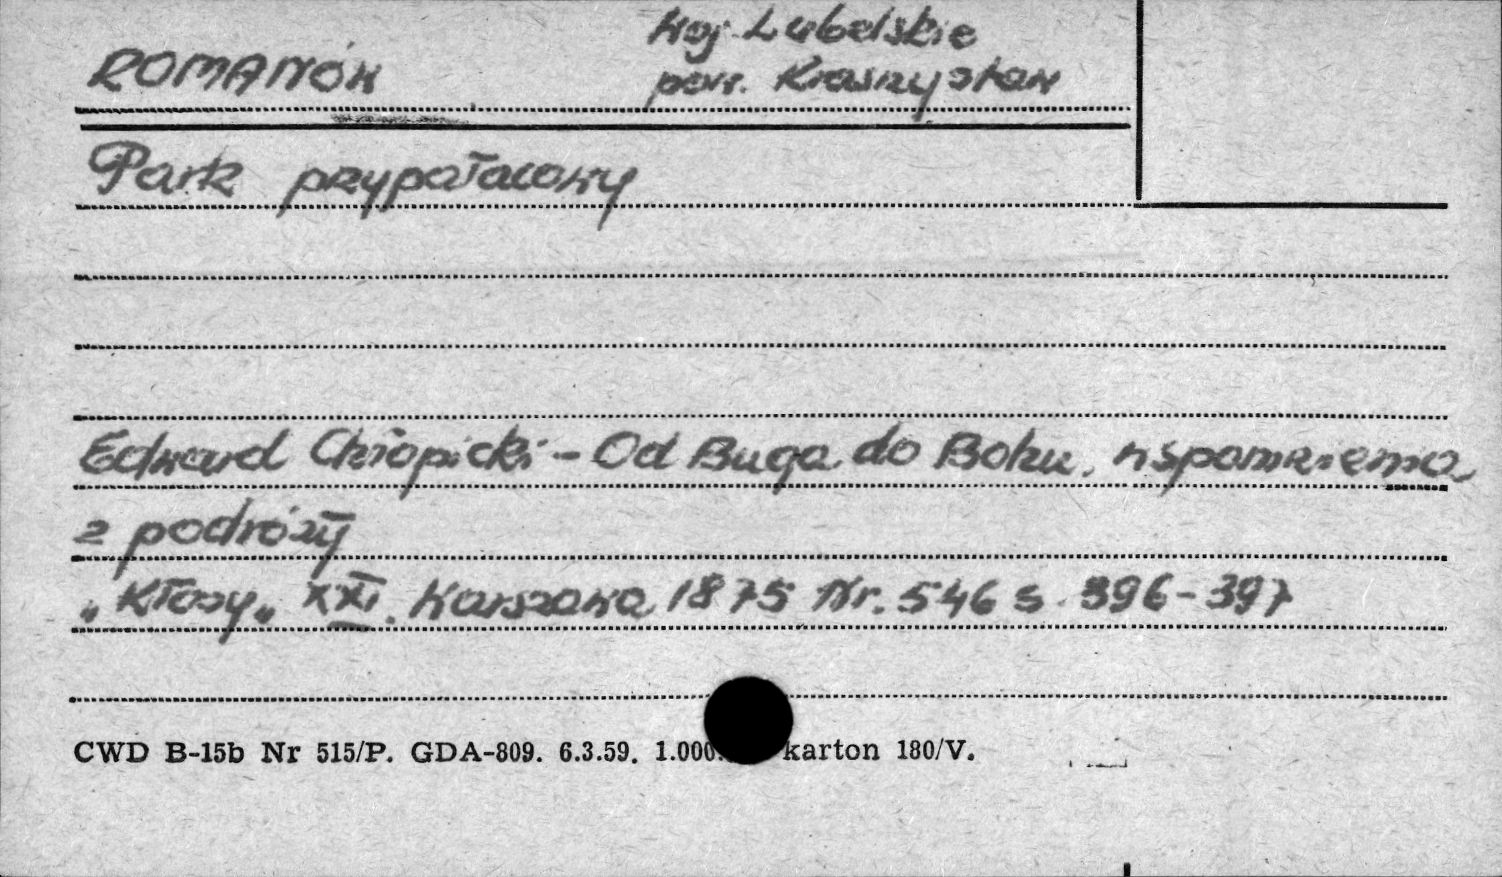 ROMANÓW
woj. Lubelskie
pow. Krasnystaw
Park przypałacowy
Edward Chłopicki - Od Buga do Bohu. wspomnienia
z podróży
„Kłosy„ XXI. Warszawa 1875 Nr. 546 s. 396-397
CWD B-15b Nr 515/P. GDA-809. 6.3.59. 1.000. karton 180/V.